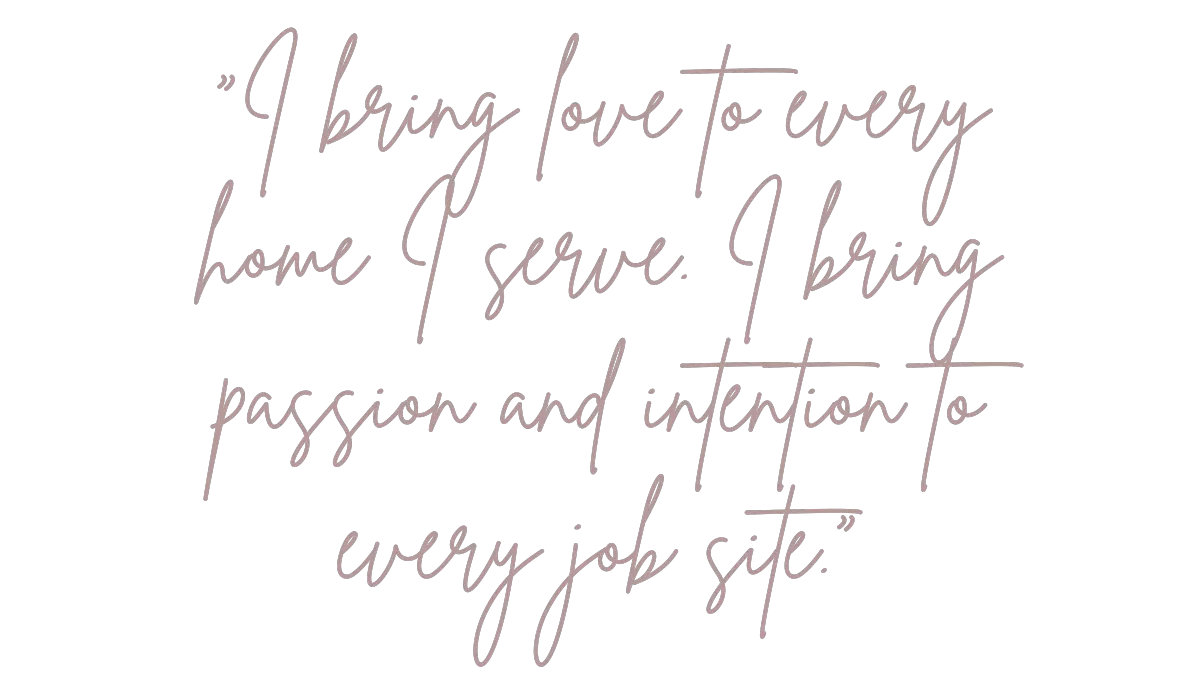 ”I bring love to every
home I serve. I bring
passion and intention to
every job site.”